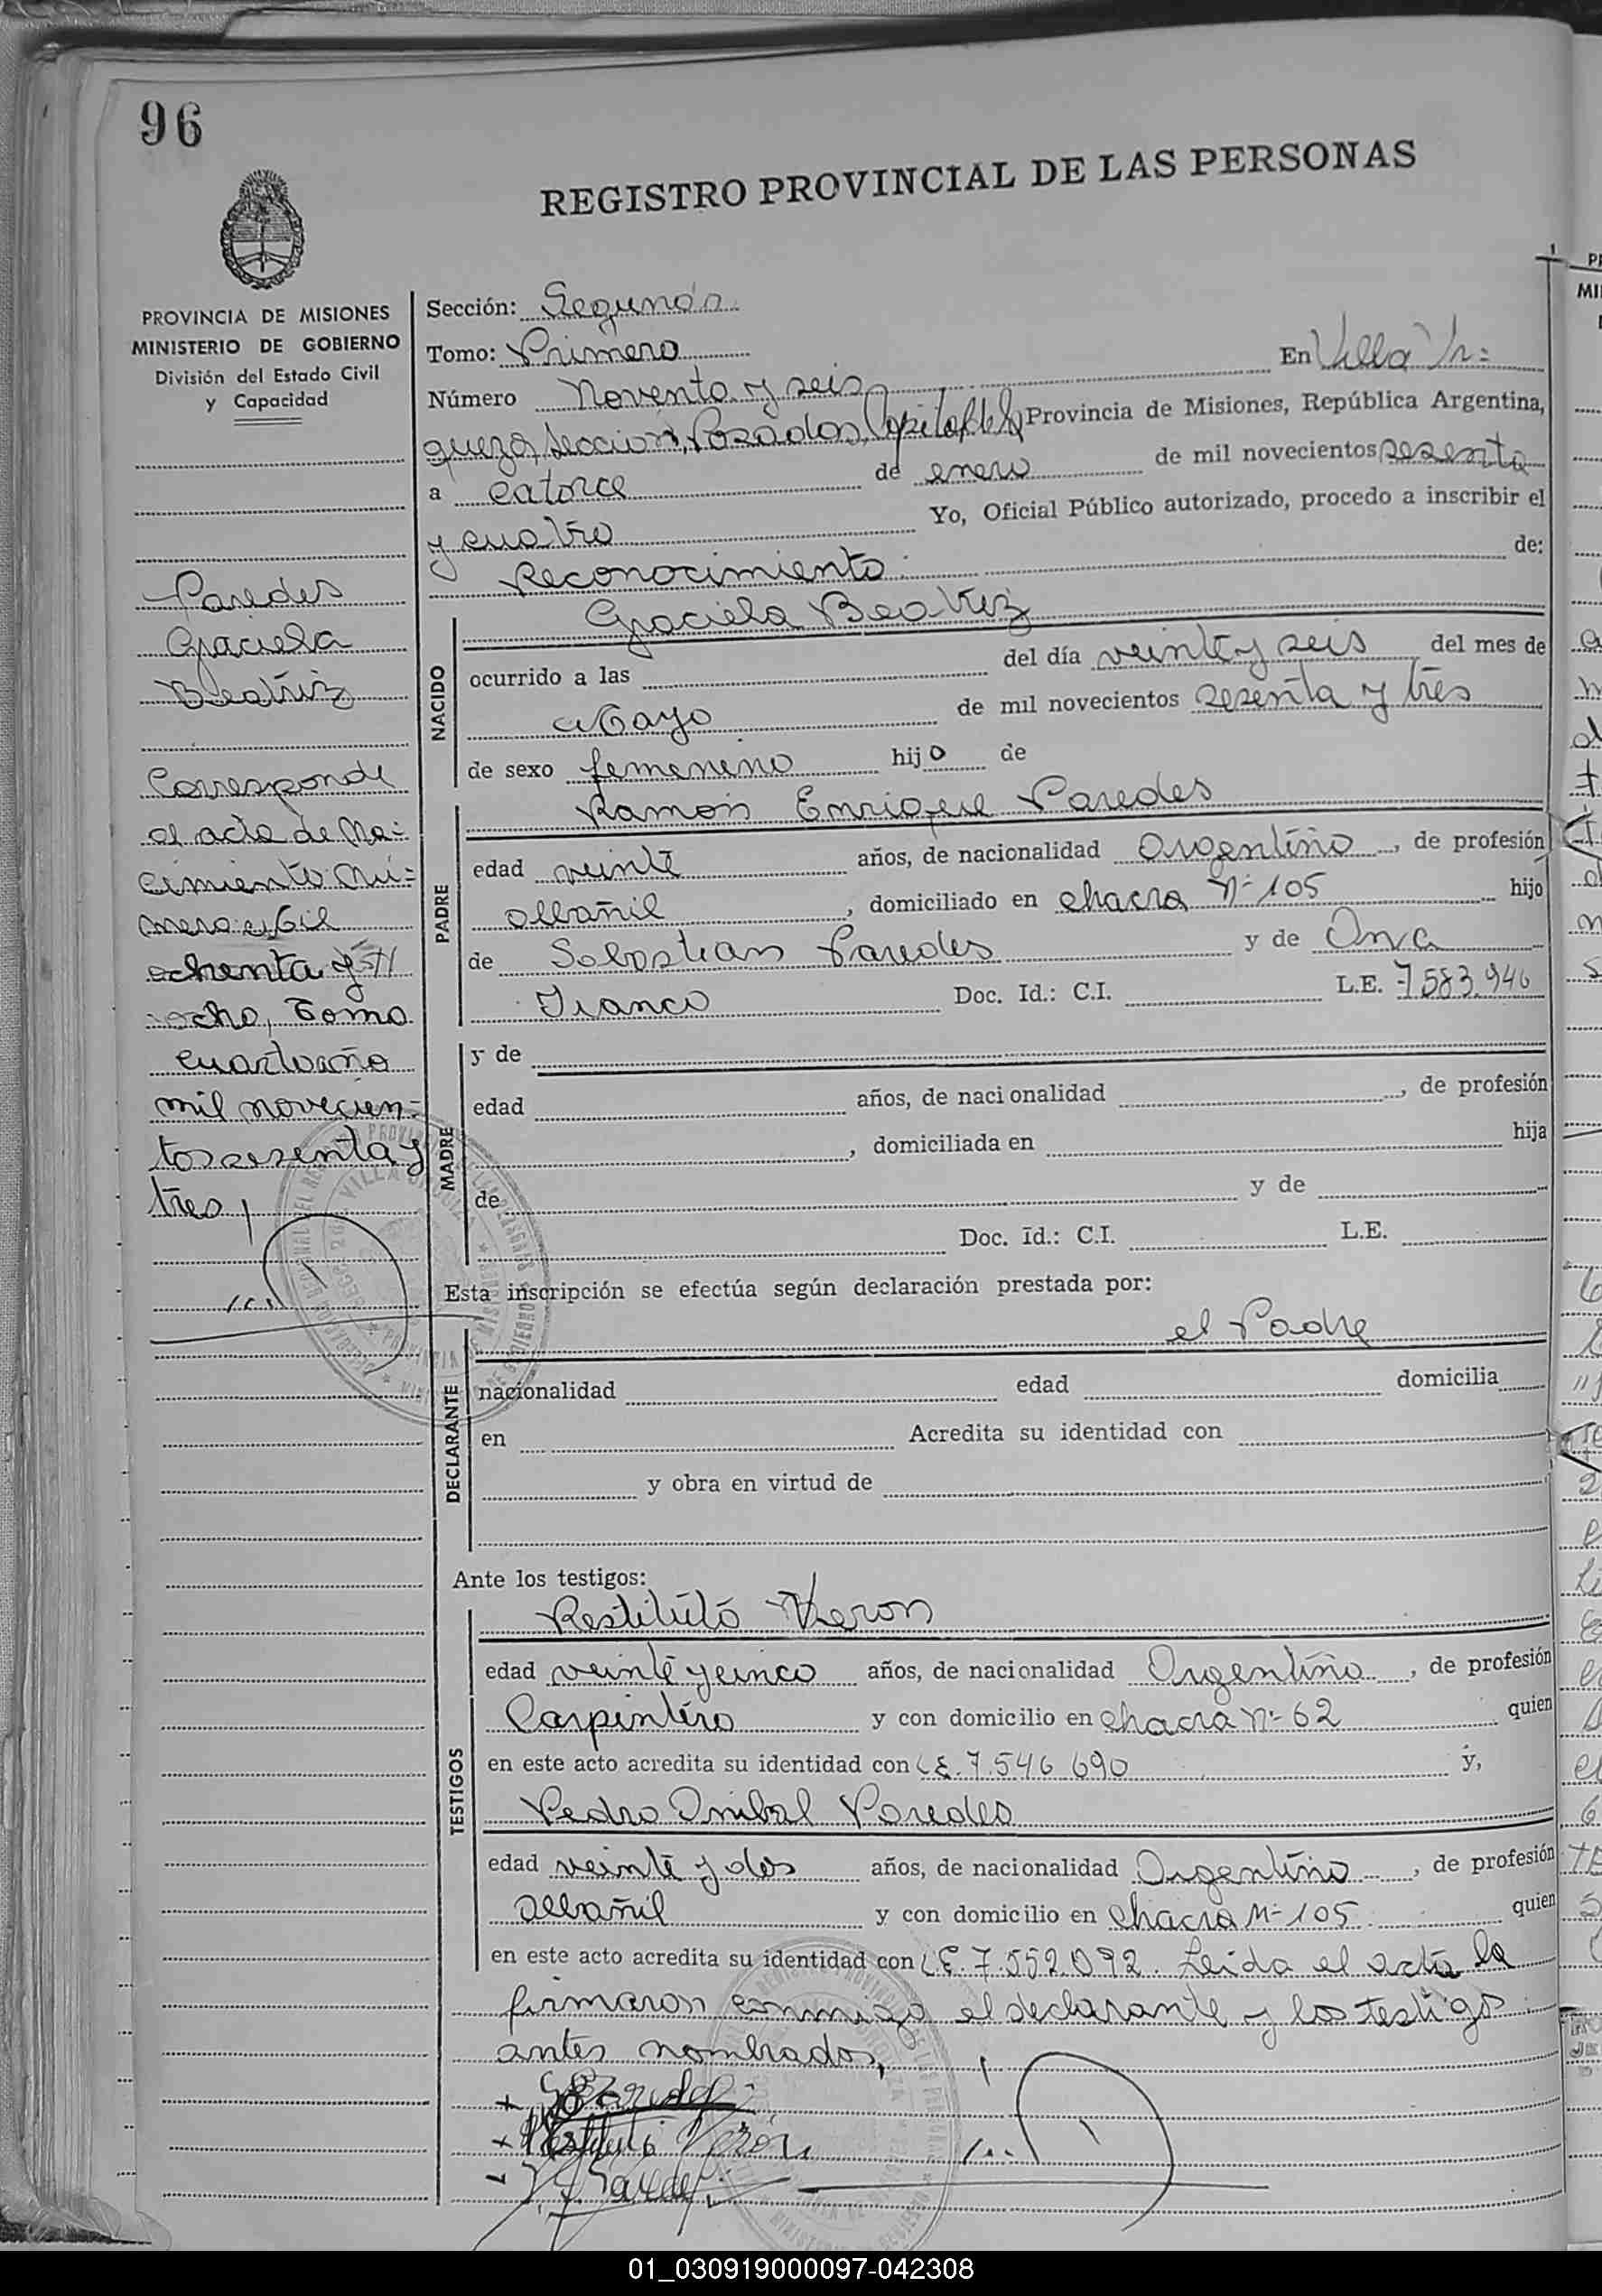 96
REGISTRO PROVINCIAL DE LAS PERSONAS
PROVINCIA DE MISIONES
MINISTERIO DE GOBIERNO
División del Estado Civil
y Capacidad
Paredes
Graciela
Beatriz
Corresponde
al acta de Na=
cimiento Nú=
mero Mil
ochenta y
ocho, Tomo
cuarto año
mil novecien=
tos sesenta y
tres
Sección: Segunda
Tomo: Primero
Número Noventa y seis En Villa Ur=
quiza, Sección, Posadas, Capital de la Provincia de Misiones, República Argentina,
a catorce de enero de mil novecientos sesenta
y cuatro Yo, Oficial Público autorizado, procedo a inscribir el
Reconocimiento de:
NACIDO
Graciela Beatriz
ocurrido a las del día veinte y seis del mes de
Mayo de mil novecientos sesenta y tres
de sexo femenino hija de
PADRE
Ramón Enrique Paredes
edad veinte años, de nacionalidad Argentino, de profesión
albañil, domiciliado en chacra Nº 105 hijo
de Sebastian Paredes y de Ana
Franco Doc. Id.: C.I. L.E. 7.583.946
MADRE
y de
edad años, de nacionalidad , de profesión
, domiciliada en hija
de y de
Doc. Id.: C.I. L.E.
Esta inscripción se efectúa según declaración prestada por:
el Padre
DECLARANTE
nacionalidad edad domicilia
en Acredita su identidad con
y obra en virtud de
Ante los testigos:
TESTIGOS
Restituto Veron
edad veinte y cinco años, de nacionalidad Argentino, de profesión
Carpintero y con domicilio en chacra Nº 62 quien
en este acto acredita su identidad con L.E. 7.546.690 y,
Pedro Anibal Paredes
edad veinte y dos años, de nacionalidad Argentino, de profesión
albañil y con domicilio en chacra Nº 105 quien
en este acto acredita su identidad con L.E. 7.552.092. Leida el acta la
firmaron conmigo el declarante y los testigos
antes nombrados,
Restituto Verón
01_030919000097-042308